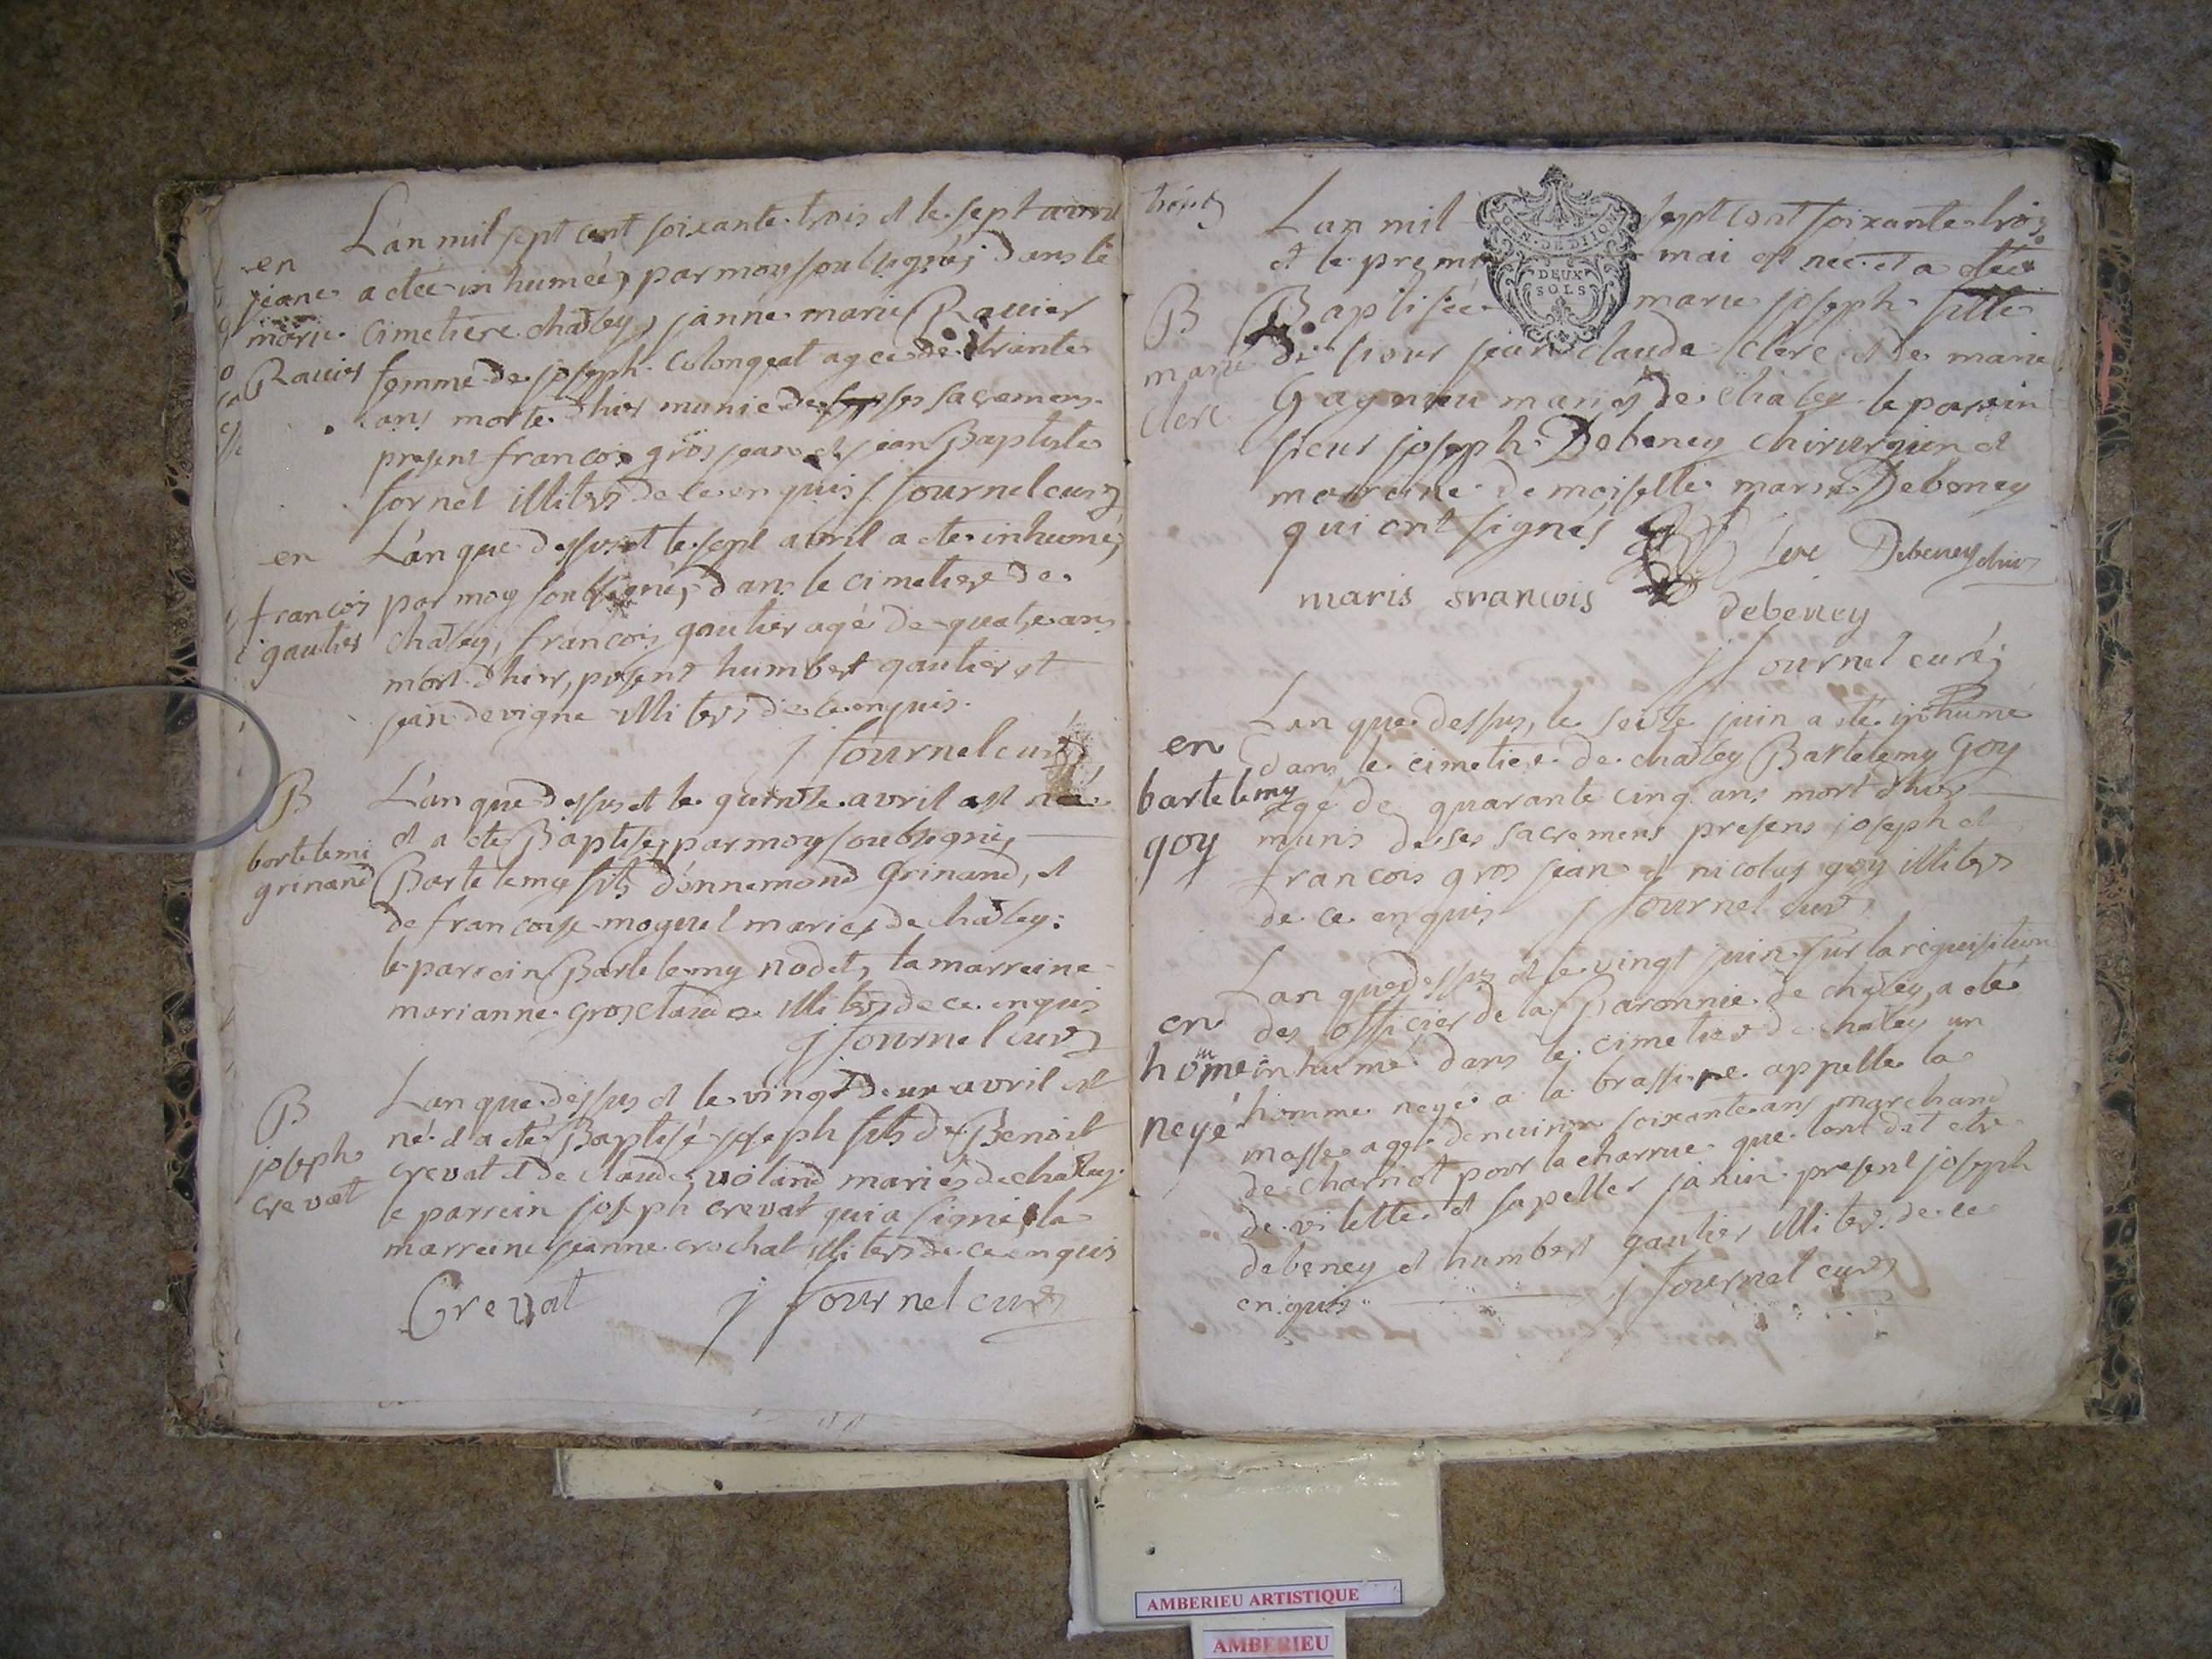 L'an mil sept cent soixante trois et le sept avril
en
jeanne
marie
Ravier
a étée inhumée, par moy soubsigné, dans le
cimetière chaley, janne marie Ravier
femme de joseph colongeat agee de trante
ans morte d'hier munie de ses sacremens
present francois gros jean et jean Baptiste
fornel illiters de ce enquis j fournel curé
en
francois
gautier
L'an que dessus et le sept avril a ete inhumé,
par moy soubsigné, dans le cimetiere de
chaley, francois gautier agé de quatre ans
mort d'hier, present humbert gautier et
jean devigne illiters de ce enquis.
j fournel curé
B
bartelemi
grinand
L'an que dessus et le quinze avril est né
et a eté Baptisé, par moy soubsigné,
Bartelemy fils d'ennemond Grinand, et
de francoise moguel mariés de chaley:
le parrein Bartelemy nodet, la marreine
marianne gros claude illiters de ce enquis
j fournel curé
B
joseph
crevat
L'an que dessus et le vingt deux avril est
né et a eté Baptisé joseph fils de Benoit
crevat et de claude voiland mariés de chaley.
le parrein joseph crevat qui a signé, la
marreine jeanne crochat illiters de ce enquis
Crevat j fournel curé
trois
L'an mil sept cent soixante trois
GEN. DE DIJON
DEUX
SOLS
et le premier mai est née et a étée
B
marie
clerc
Baptisée marie joseph fille
de sieur jean claude clerc et de marie
Gagnieu mariés de chaley le parrein
sieur joseph Debeney chirurgien et
marreine demoiselle marie Debeney
qui ont signés Clerc Debeney chir
maris francois debeney
j fournel curé,
en
bartelemy
goy
L'an que dessus, le seize juin a eté inhumé
dans le cimetiere de chaley Bartelemy Goy
agé de quarante cinq ans mort d'hier
munis de ses sacremens presens joseph et
francois gros jean et nicolas goy illiters
de ce enquis j fournel curé
en
un
home
neyé
L'an que dessus et le vingt juin sur la requisition
des officier de la Baronnie de chaley, a eté
inhumé dans le cimetiere de chaley un
homme neyé a la brassine appelle la
masse agé denviron soixante ans marchand
de charriot pour la charrue que lont dit etre
de vilette et sapeller janin present joseph
debeney et humbert gautier illiters de ce
enquis j fournel curé
AMBERIEU ARTISTIQUE
AMBERIEU